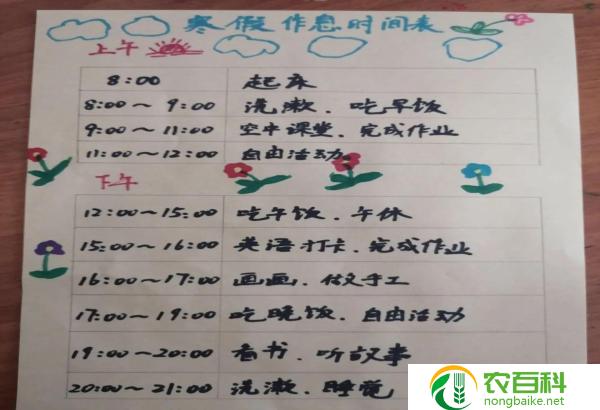 寒假作息时间表
上午
8:00 起床
8:00～9:00 洗漱、吃早饭
9:00～11:00 空中课堂、完成作业
11:00～12:00 自由活动。
下午
12:00～15:00 吃午饭、午休
15:00～16:00 英语打卡、完成作业
16:00～17:00 画画、做手工
17:00～19:00 吃晚饭、自由活动
19:00～20:00 看书、听故事
20:00～21:00 洗漱、睡觉
农百科
nongbaike.net